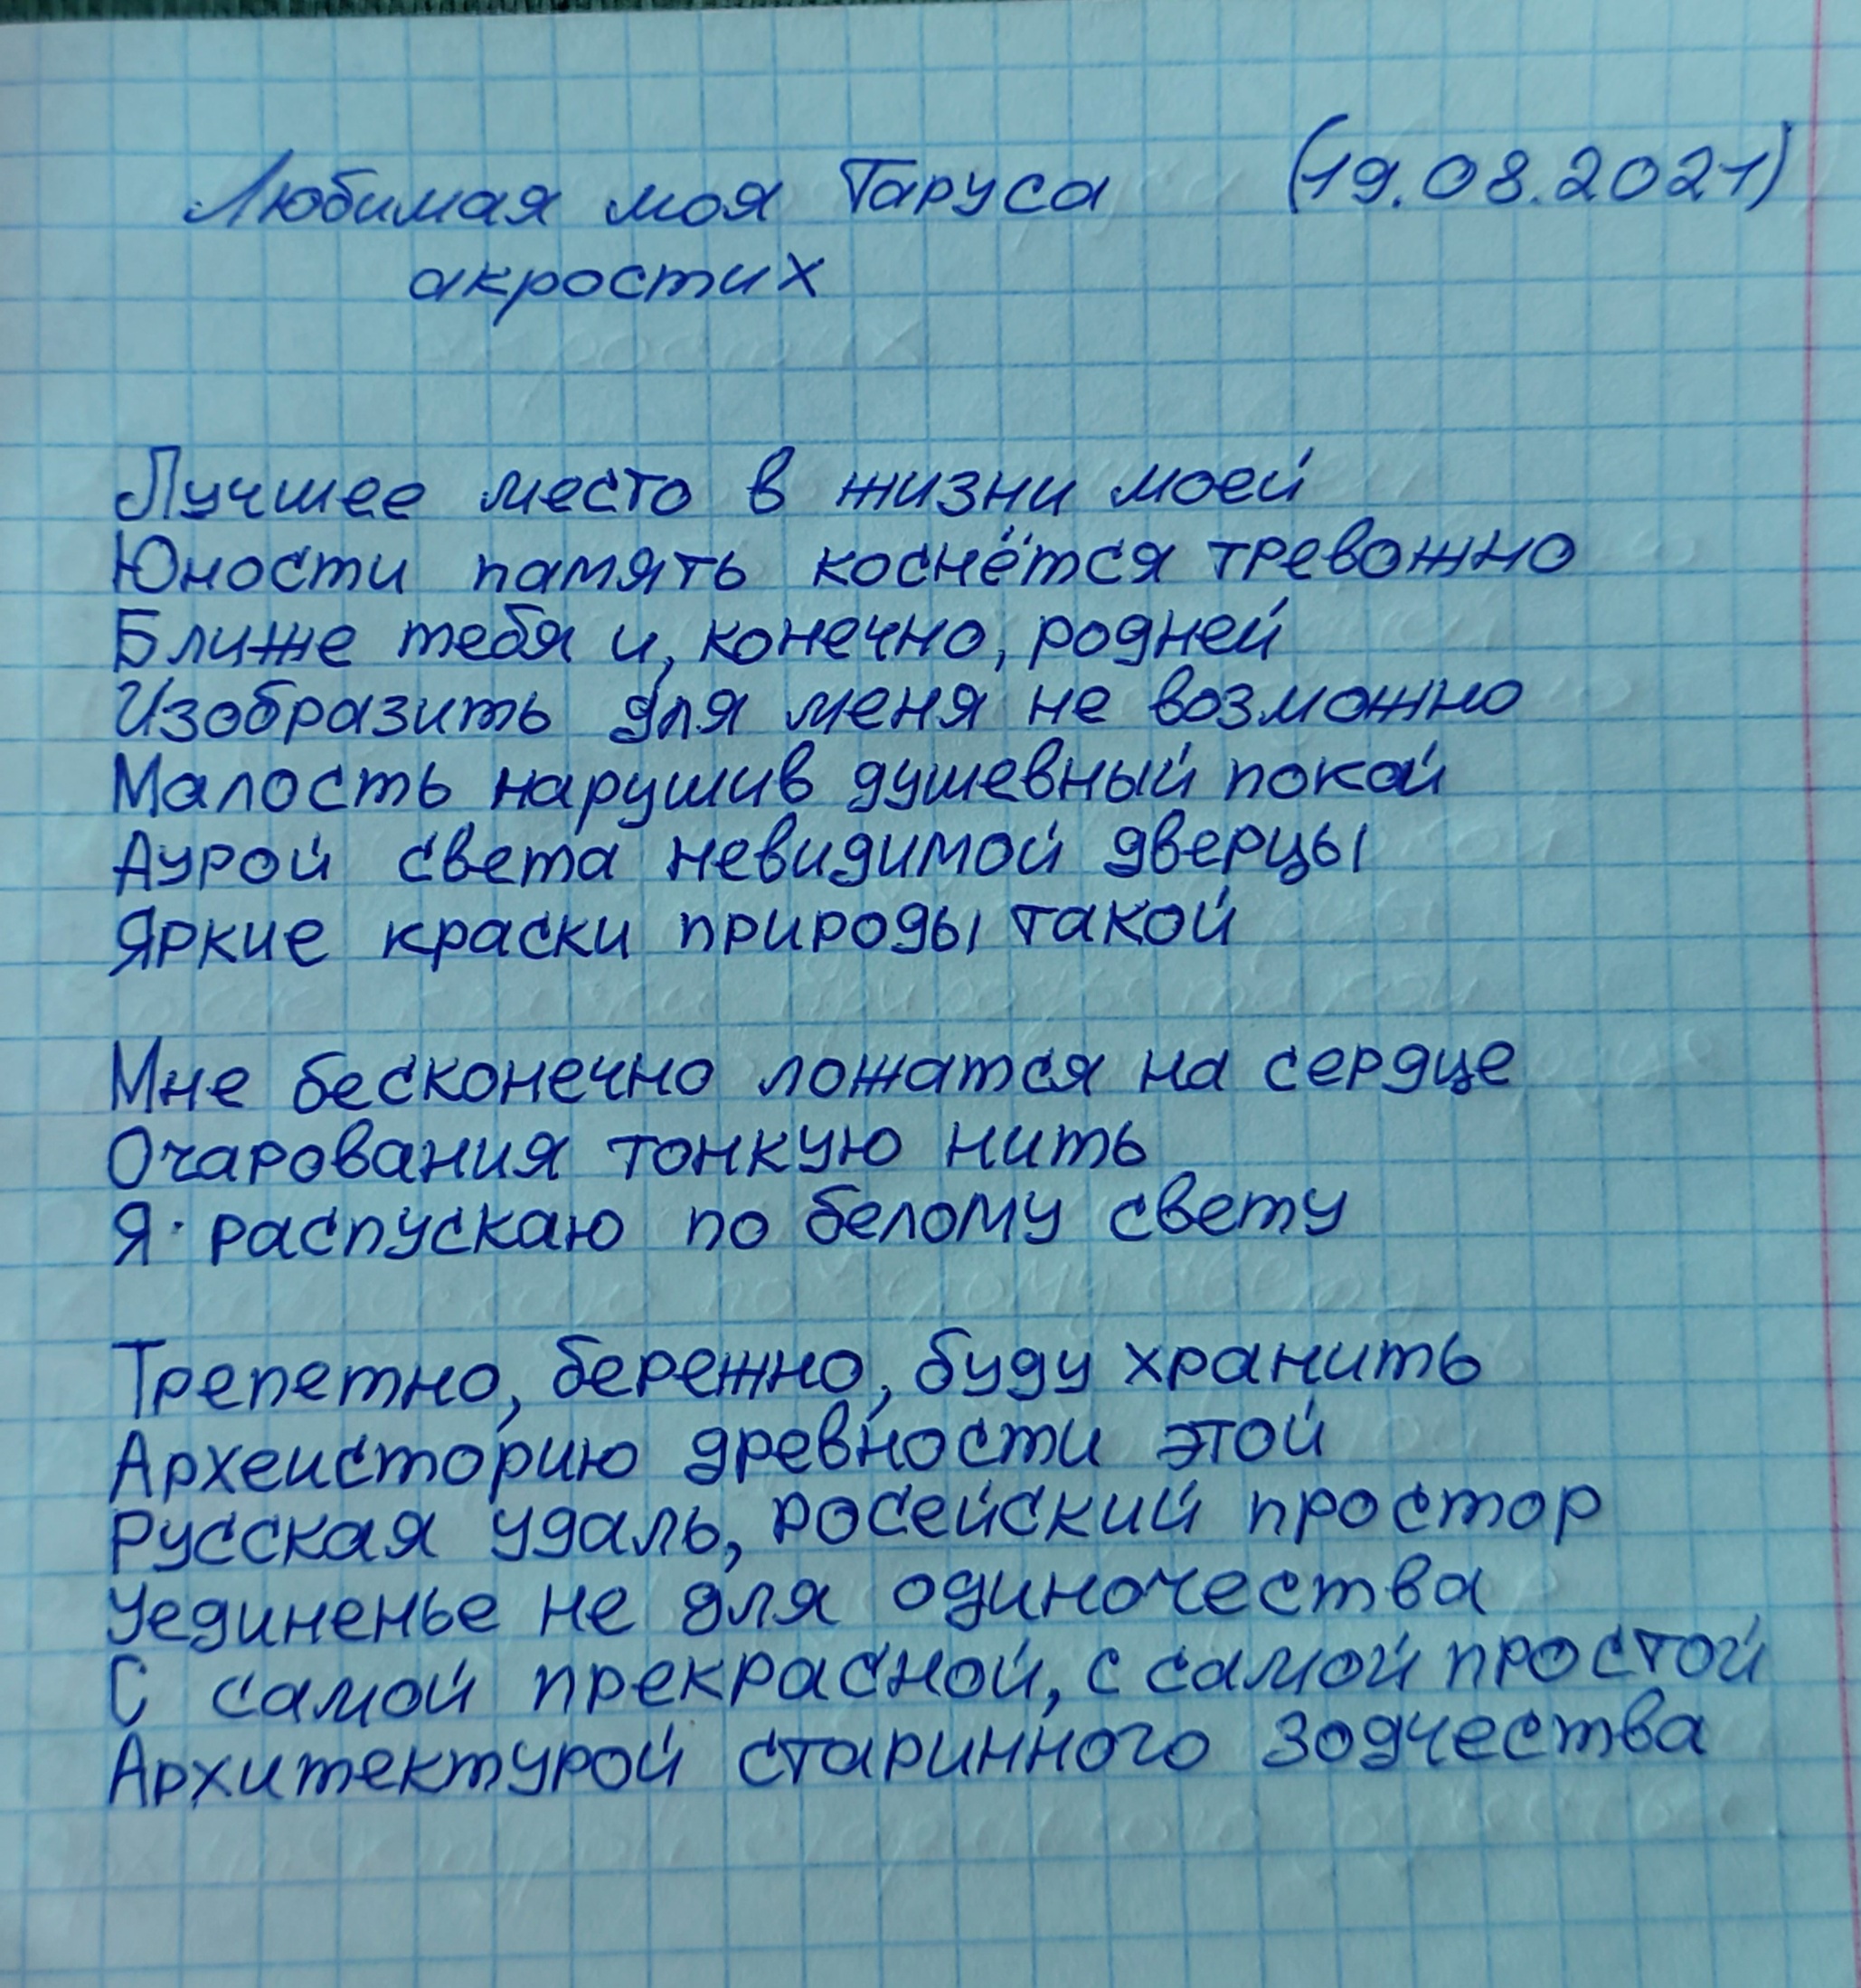 Любимая моя Таруса (19.08.2021)
акростих
Лучшее место в жизни моей
Юности память коснётся тревожно
Ближе тебя и, конечно, родней
Изобразить для меня не возможно
Малость нарушив душевный покой
Аурой света невидимой дверцы
Яркие краски природы такой
Мне бесконечно ложатся на сердце
Очарования тонкую нить
Я распускаю по белому свету
Трепетно, бережно, буду хранить
Археисторию древности этой
Русская удаль, росейский простор
Уединенье не для одиночества
С самой прекрасной, с самой простой
Архитектурой старинного зодчества